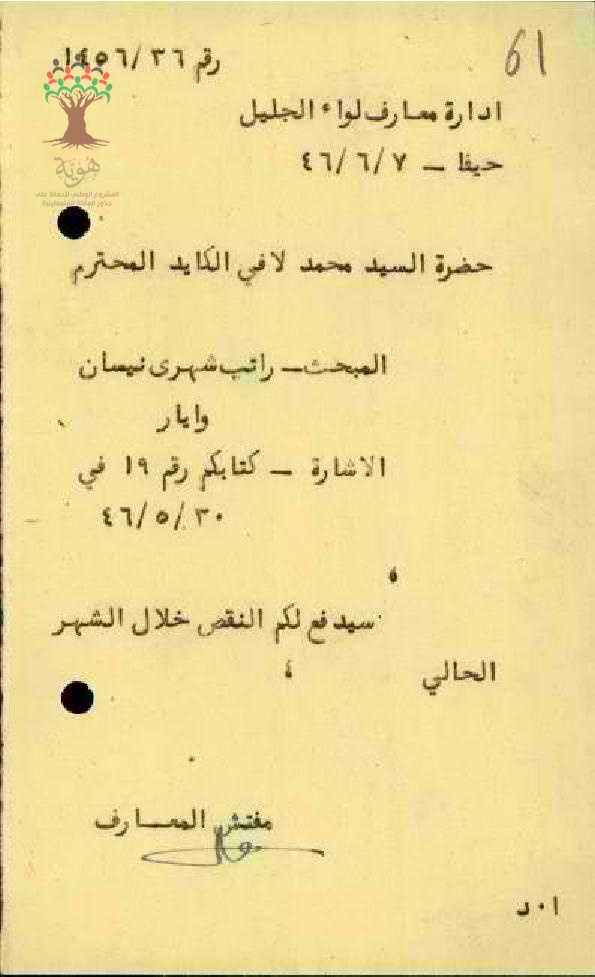 61
رقم ١٤٥٦/٣٦
هوية
المشروع الوطني للحفاظ على
جذور العائلة الفلسطينية
ادارة معارف لواء الجليل
حيفا – ٤٦/٦/٧
حضرة السيد محمد لافي الكايد المحترم
المبحث – راتب شهرى نيسان
وايار
الاشارة – كتابكم رقم ١٩ في
٤٦/٥/٣٠
،
سيدفع لكم النقص خلال الشهر
الحالي ،
مفتش المعارف
ا٠د